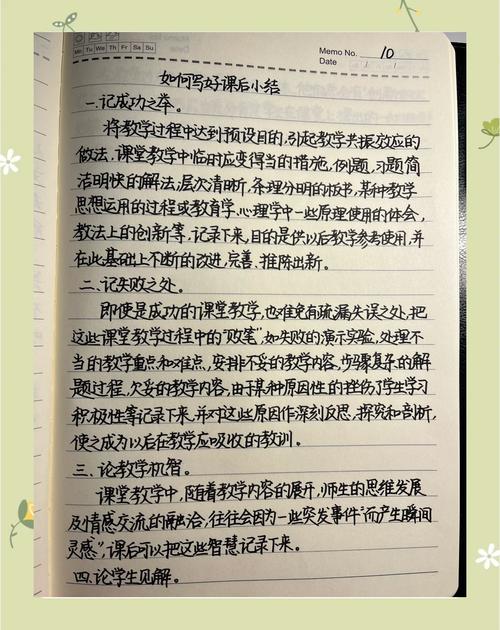 Mo Tu We Th Fr Sa Su
Memo No. 10
Date
如何写好课后小结
一.记成功之举。
将教学过程中达到预设目的,引起教学共振效应的
做法.课堂教学中临时应变得当的措施,例题,习题简
洁明快的解法,层次清晰,条理分明的板书,某种教学
思想运用的过程或教育学.心理学中一些原理使用的体会,
教法上的创新等.记录下来,目的是供以后教学参考使用,并
在此基础上不断的改进.完善、推陈出新。
二、记失败之处。
即使是成功的课堂教学,也难免有疏漏失误之处,把
这些课堂教学过程中的"败笔",如失败的演示实验,处理不
当的教学重点和难点,安排不妥的教学内容,步骤复杂的解
题过程,欠妥的教学内容,由于某种原因性的挫伤了学生学习
积极性等记录下来,并对这些原因作深刻反思,探究和剖析,
使之成为以后在教学应吸收的教训。
三、论教学机智。
课堂教学中,随着教学内容的展开,师生的思维发展
及情感交流的融洽,往往会因为一些突发事件"而产生瞬间
灵感",课后可以把这些智慧记录下来。
四.论学生见解。